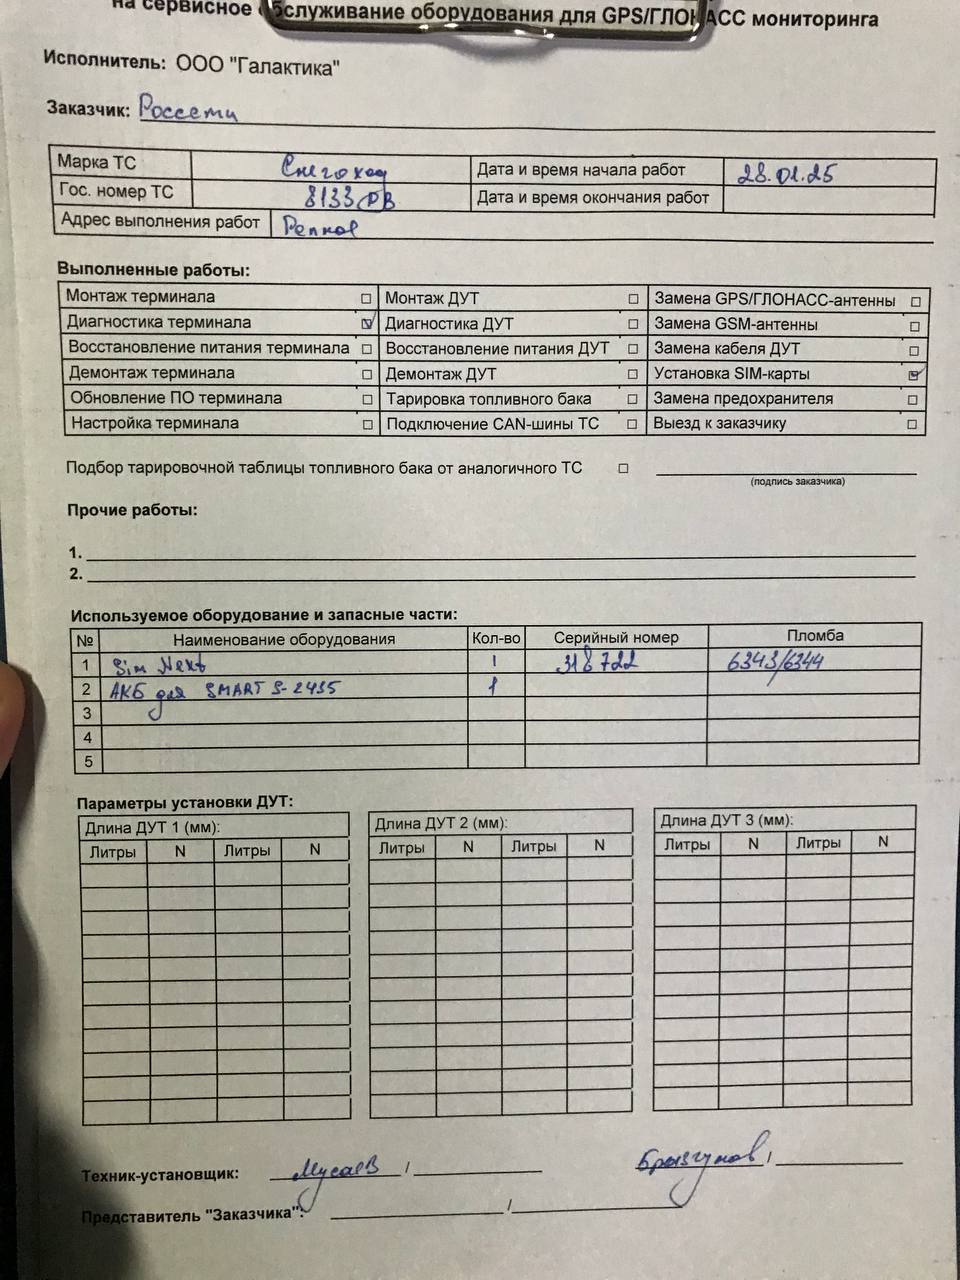 на сервисное обслуживание оборудования для GPS/ГЛОНАСС мониторинга
Исполнитель: ООО "Галактика"
Заказчик: Россети
Марка ТС Снегоход Дата и время начала работ 28.01.25
Гос. номер ТС 8133 РВ Дата и время окончания работ
Адрес выполнения работ
Выполненные работы:
Монтаж терминала ☐ Монтаж ДУТ ☐ Замена GPS/ГЛОНАСС-антенны ☐
Диагностика терминала ☑ Диагностика ДУТ ☐ Замена GSM-антенны ☐
Восстановление питания терминала ☐ Восстановление питания ДУТ ☐ Замена кабеля ДУТ ☐
Демонтаж терминала ☐ Демонтаж ДУТ ☐ Установка SIM-карты ☑
Обновление ПО терминала ☐ Тарировка топливного бака ☐ Замена предохранителя ☐
Настройка терминала ☐ Подключение CAN-шины ТС ☐ Выезд к заказчику ☐
Подбор тарировочной таблицы топливного бака от аналогичного ТС ☐
(подпись заказчика)
Прочие работы:
1.
2.
Используемое оборудование и запасные части:
№ Наименование оборудования Кол-во Серийный номер Пломба
1 Sim Next 1 6343/6344
2 АКБ для SMART S-2435 1
3
4
5
Параметры установки ДУТ:
Длина ДУТ 1 (мм): Длина ДУТ 2 (мм): Длина ДУТ 3 (мм):
Литры N Литры N Литры N Литры N Литры N Литры N
Техник-установщик: Мусаев / Брызгунов /
Представитель "Заказчика": /